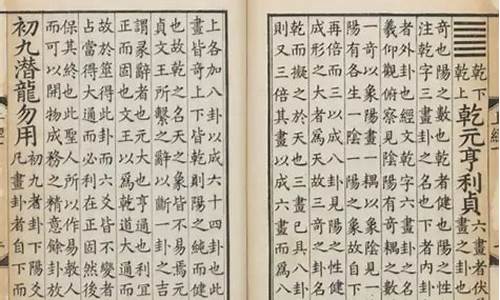 乾下
乾上
乾元亨利貞
六畫者伏
奇也陽之數也乾者健也陽之性
註乾字三畫卦之名也下者內卦
者外卦也經文乾字六畫卦之名
羲仰觀俯察見陰陽有奇耦之數
一奇以象陽畫一耦以象陰見一
陽有各生一陰一陽之象故自下
再倍而三以成八卦見陽之性健
成形之大者爲天故三奇之卦名
乾而擬之於天也三畫已具八卦
則又三倍其畫以成六畫而於八
上各加八卦以成六十四卦也此
畫皆奇上下皆乾則陽之純而健
也故乾之名天之象皆不易焉元
貞文王所繫之辭以斷一卦之吉
謂彖辭者也元大也亨通也利宜
正而固也文王以爲乾道大通而
故於筮得此卦而六爻皆不變
占當得大通而必利在正固然後
保其終也此聖人所以作易教人
而可以開物成務之精意餘卦放
初九潛龍勿用
初九者卦下陽爻
凡畫卦者自下而